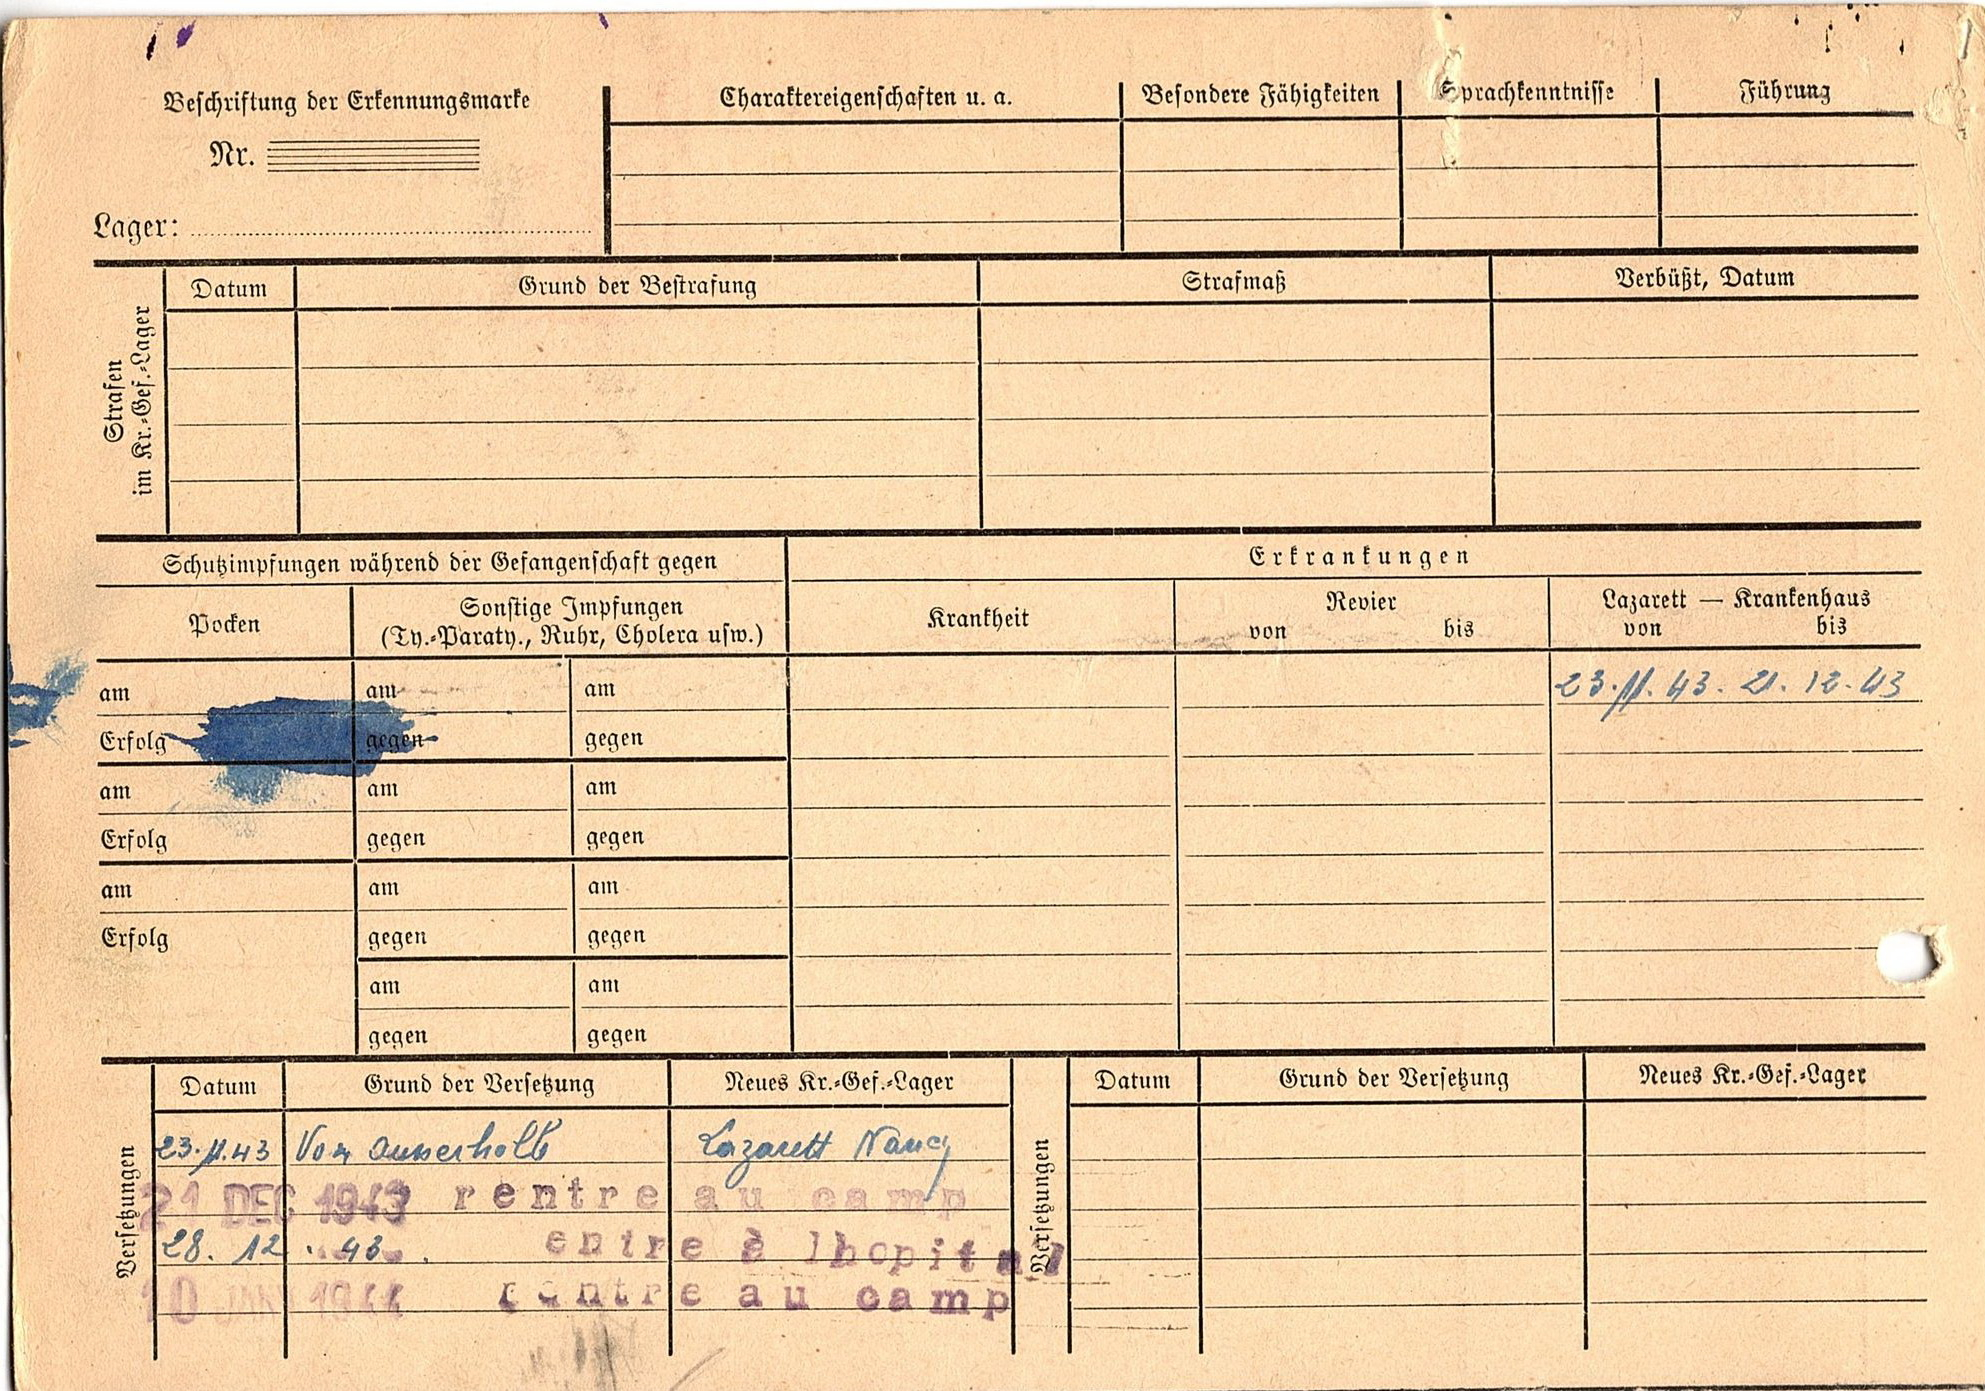 Beschriftung der Erkennungsmarke
Nr.
Lager:
Charaktereigenschaften u. a.
Besondere Fähigkeiten
Sprachkenntnisse
Führung
Strafen
im Kr.-Gef.-Lager
Datum
Grund der Bestrafung
Strafmaß
Verbüßt, Datum
Schutzimpfungen während der Gefangenschaft gegen
Erkrankungen
Pocken
Sonstige Impfungen
(Ty.-Paraty., Ruhr, Cholera usw.)
Krankheit
Revier
von bis
Lazarett — Krankenhaus
von bis
am am am 23.11.43. 21.12.43
Erfolg gegen gegen
am am am
Erfolg gegen gegen
am am am
Erfolg gegen gegen
am am
gegen gegen
Versetzungen
Datum Grund der Versetzung Neues Kr.-Gef.-Lager
23.11.43 Von ausserhalb Lazarett Nancy
21 DEC 1943 rentre au camp
28. 12. 43. entre à lhopital
10 JAN 1944 rentre au camp
Versetzungen
Datum Grund der Versetzung Neues Kr.-Gef.-Lager